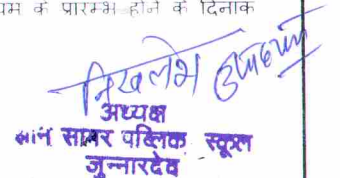 के प्रारम्भ होने के दिनांक
निखलेश उपाध्याय
अध्यक्ष
सागर पब्लिक स्कूल
जुन्नारदेव